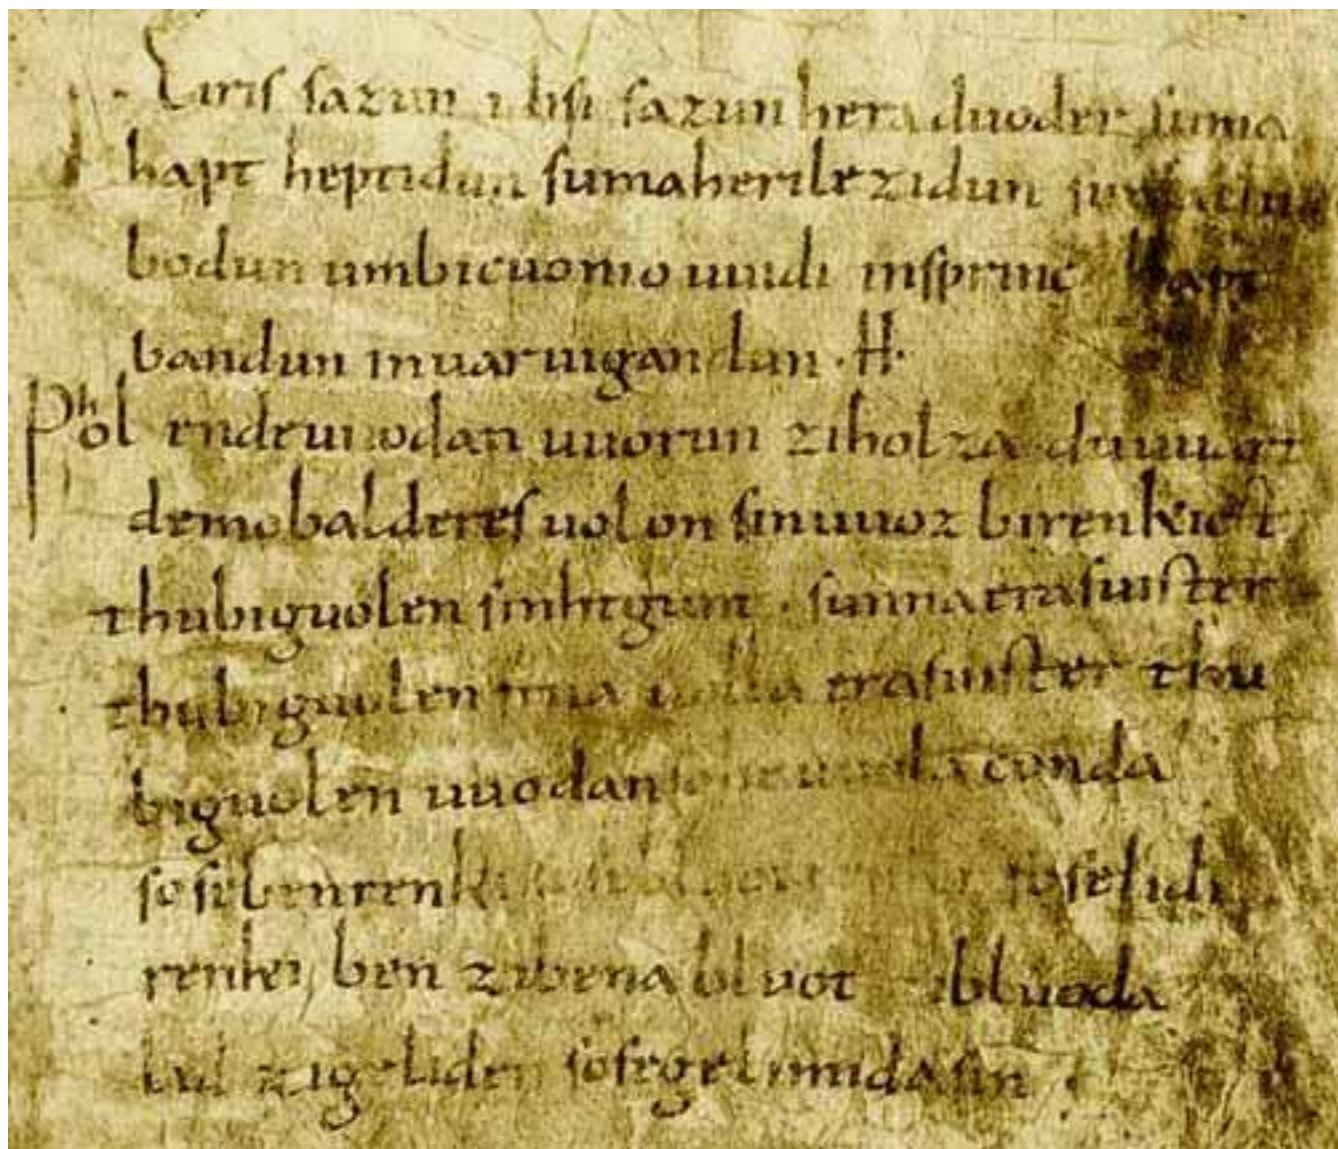 Eiris sazun idisi sazun hera duoder suma
hapt heptidun sumaherilezidun sumaclu
bodun umbicuonio uuidi insprinc hapt
bandun inuar uigandun .H.
Phol endeuuodan uuorun ziholza duuuart
demobalderes uolon sinuuoz birenkict
thubiguolen sinhtgunt . sunnaerasuister
thubiguolen friia uolla erasuister thu
biguolen uuodan sohe uuola conda
sosebenrenki soselidi
renki ben zibena bluot zibluoda
lid zigeliden sosegelimida sin